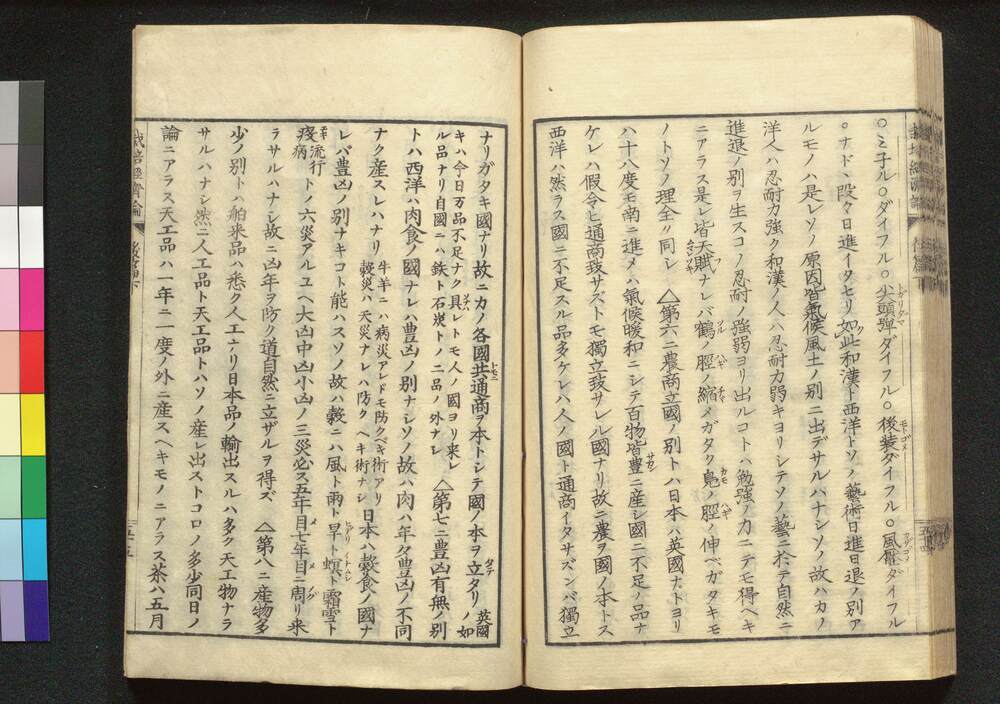 ○ミ子ル○ダイフル○尖頭弾ダイフル○後装ダイフル○風雁ダイフル
○ナド、段々日進イタセリ如此和漢ト西洋トノ藝術日進日退ノ別ア
ルモノハ是レソノ原因皆氣候風土ノ別ニ出デサルハナシソノ故ハカノ
洋人ハ忍耐力強ク和漢ノ人ハ忍耐力弱キヨリシテソノ藝ニ於テ自然ニ
進退ノ別ヲ生スコノ忍耐ノ強弱ヨリ出ルコトハ勉強ノ力ニテモ得ヘキ
ニアラス是レ皆天賦ナレバ鶴ノ脛ノ縮メガタク鳬ノ脛ノ伸ベガタキモ
ノトソノ理全ク同シ △第六ニ農商立國ノ別トハ日本ハ英國ナトヨリ
ハ十八度モ南ニ進メハ氣候暖和ニシテ百物皆豊ニ産シ國ニ不足ノ品ナ
ケレハ假令ヒ通商致サストモ獨立致サレル國ナリ故ニ農ヲ國ノ本トス
西洋ハ然ラス國ニ不足スル品多ケレハ人ノ國ト通商イタサズンバ獨立
ナリガタキ國ナリ故ニカノ各國共通商ヲ本トシテ國ノ本ヲ立タリ 英國ノ如
キハ今日万品不足ナク具レトモ人ノ國ヨリ来レ
ル品ナリ自國ニハ鉄ト石炭トノ二品ノ外ナシ △第七ニ豊凶有無ノ別
トハ西洋ハ肉食ノ國ナレハ豊凶ノ別ナシソノ故ハ肉ハ年々豊凶ノ不同
ナク産スレハナリ 牛羊ニハ病災アレドモ防クベキ術アリ
穀災ハ天災ナレハ防クヘキ術ナシ 日本ハ穀食ノ國ナ
レバ豊凶ノ別ナキコト能ハスソノ故ハ穀ニハ風ト雨ト旱ト螟ト霜雪ト
疫病流行トノ六災アルユヘ大凶中凶小凶ノ三災必ス五年目七年目ニ周リ来
ラサルハナシ故ニ凶年ヲ防ク道自然ニ立ザルヲ得ズ △第八ニ産物多
少ノ別トハ舶来品ハ悉ク人工ナリ日本品ノ輸出スルハ多ク天工物ナラ
サルハナシ然ニ人工品ト天工品トハソノ産レ出ストコロノ多少同日ノ
論ニアラス天工品ハ一年ニ一度ノ外ニ産スヘキモノニアラス茶ハ五月